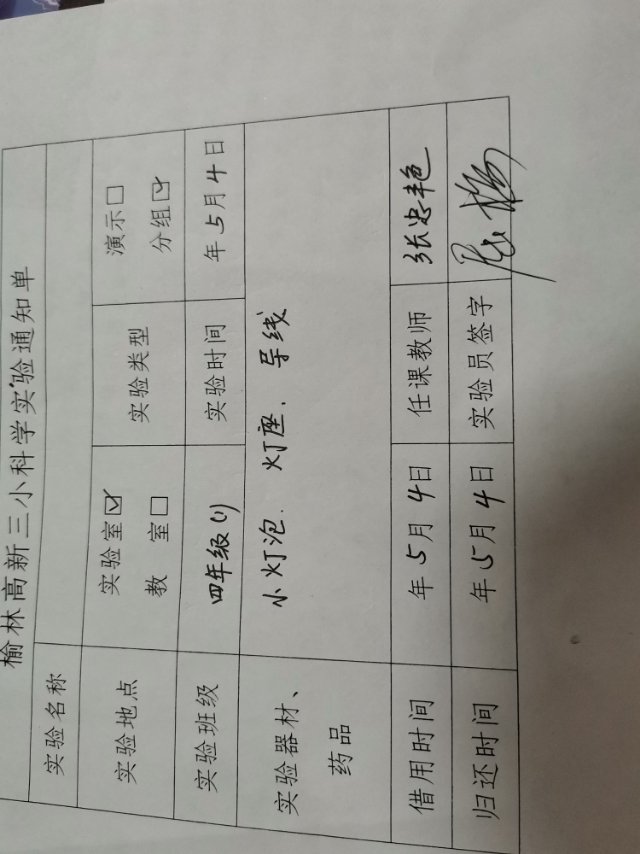 榆林高新三小科学实验通知单
实验名称
实验地点 实验室☑ 教 室☐ 实验类型 演示☐ 分组☑
实验班级 四年级(1) 实验时间 年5月4日
实验器材、药品 小灯泡、灯座、导线
借用时间 年5月4日 任课教师 张忠艳
归还时间 年5月4日 实验员签字